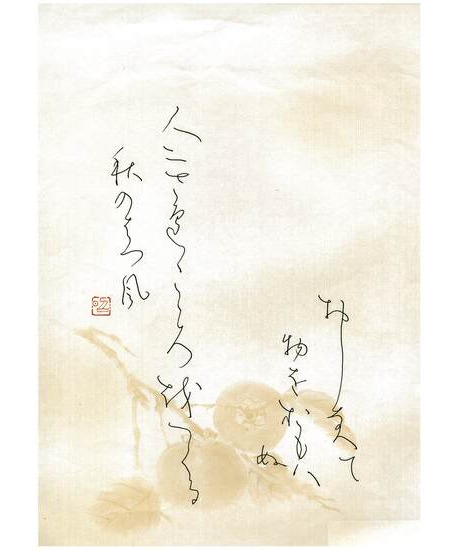 おしなへて
物をおもハ
ぬ
人にさへこころをつくる
秋のはつ風